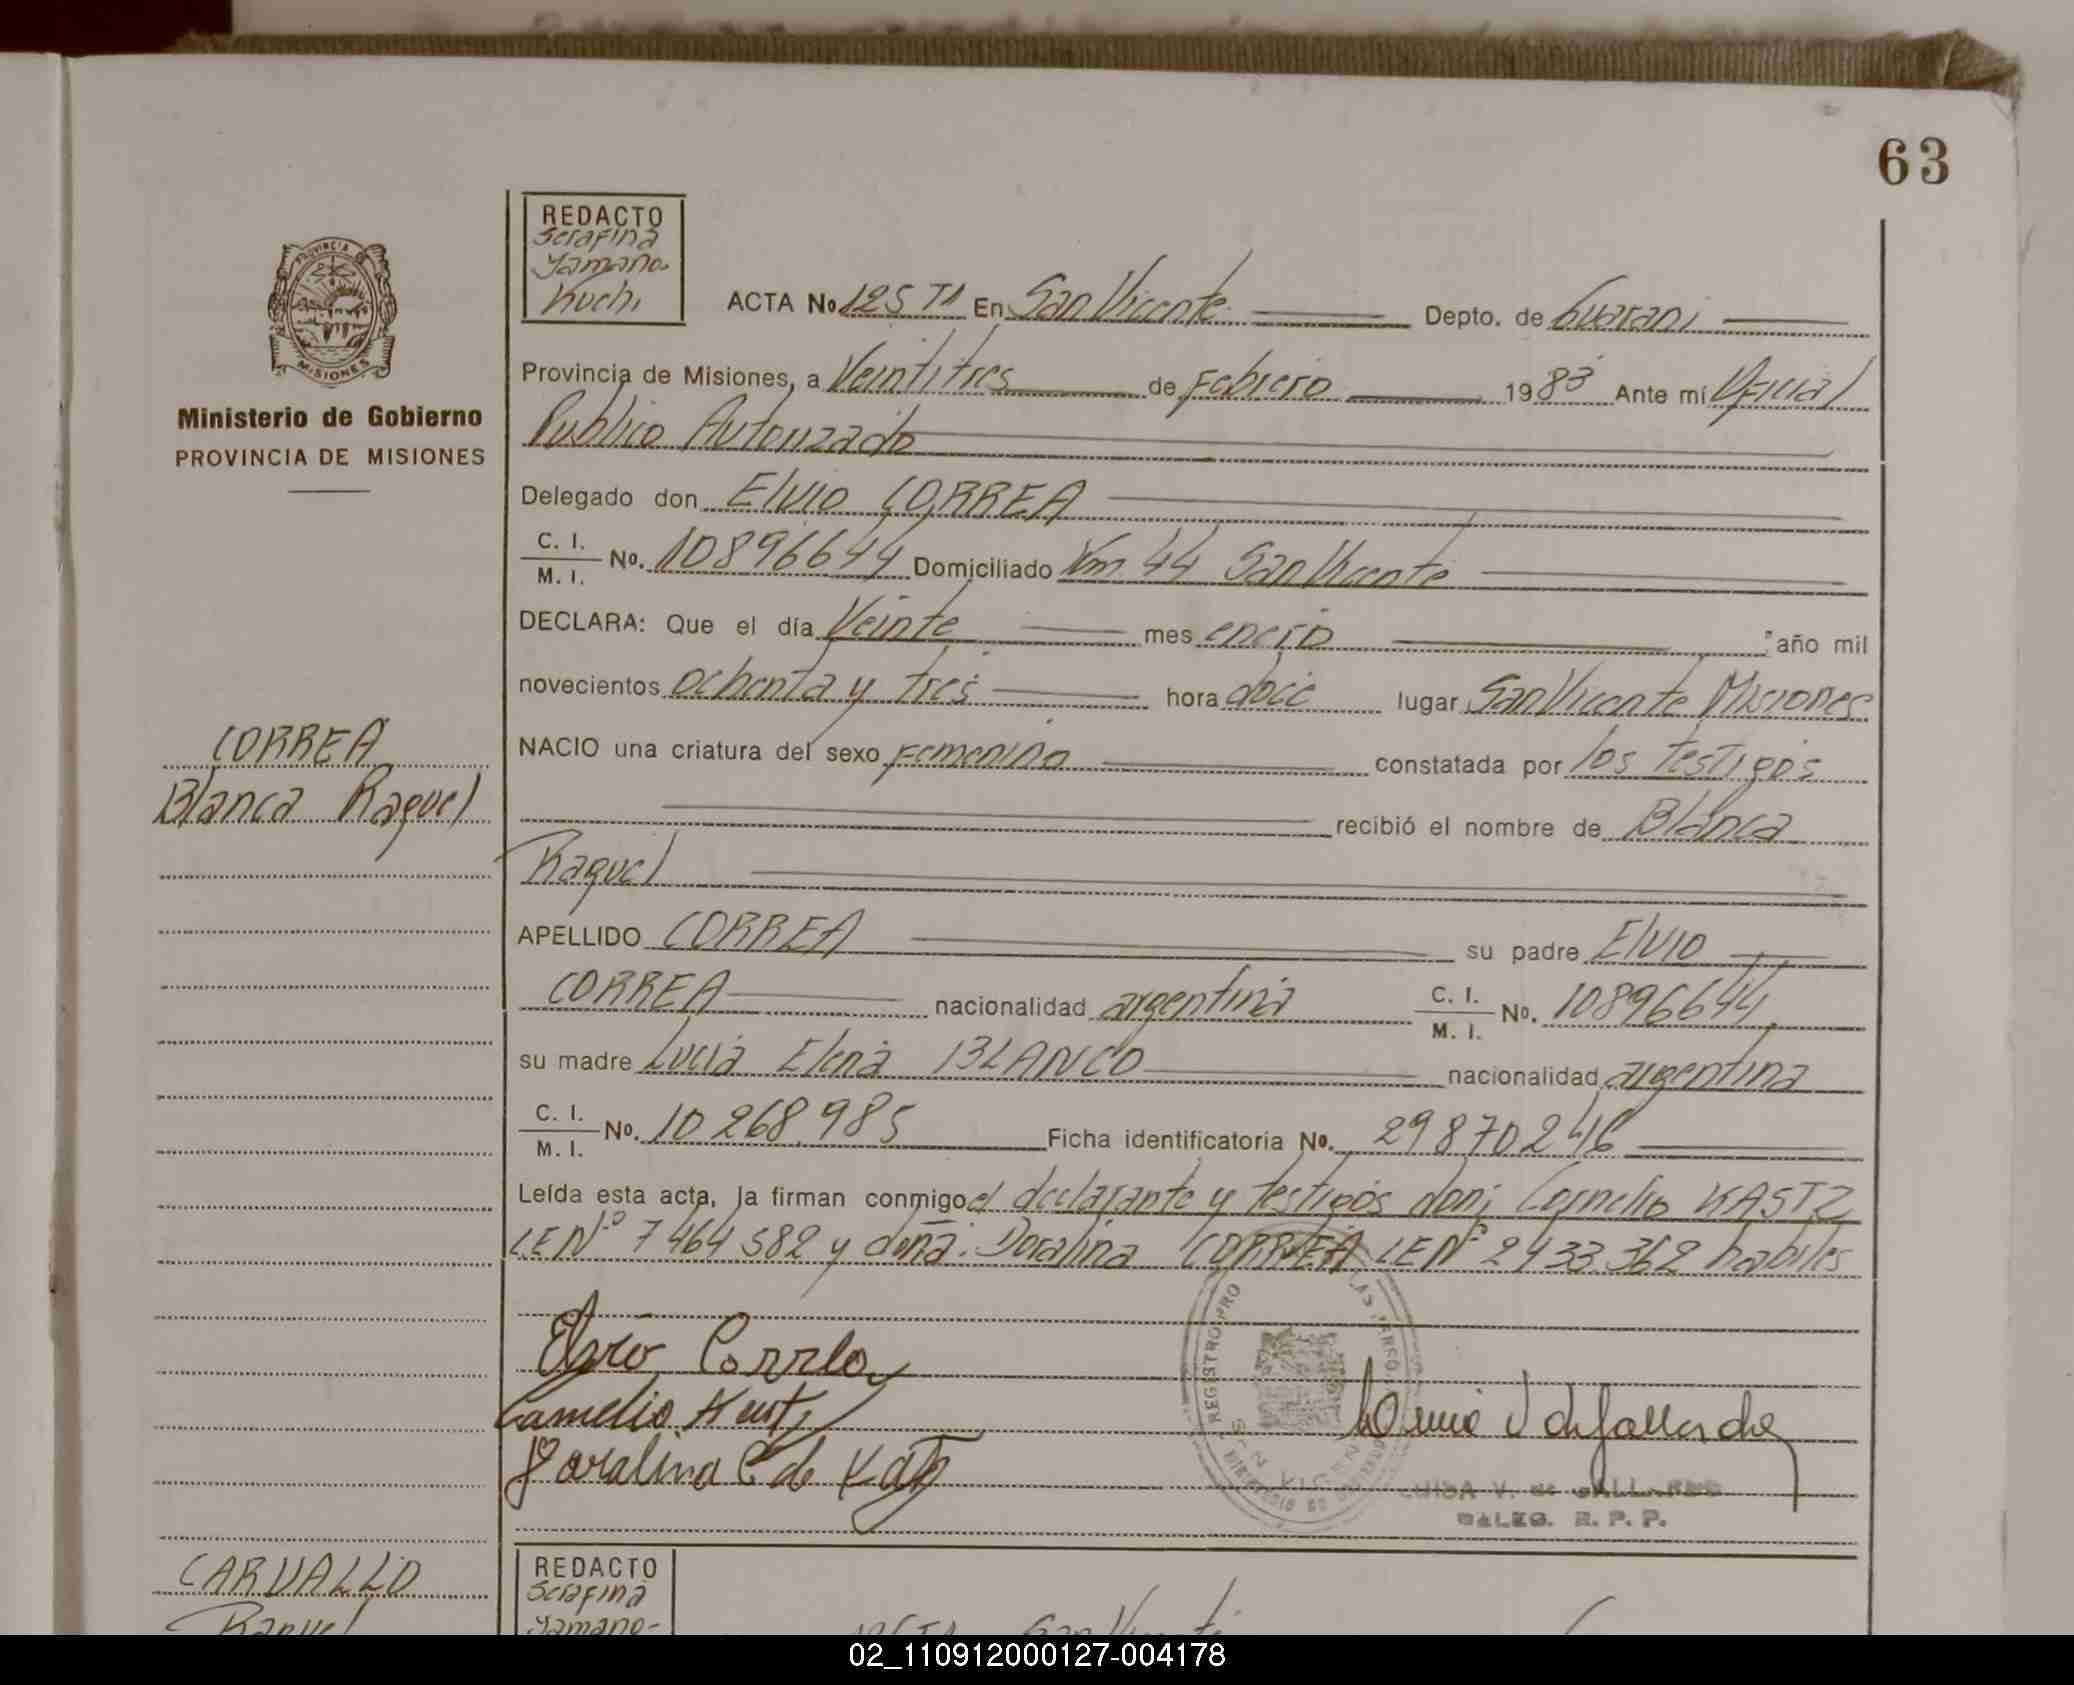 63
REDACTO
Serafina
Yamano-
Kuchi
ACTA No 125 T1 En San Vicente Depto. de Guarani
PROVINCIA DE
MISIONES
Ministerio de Gobierno
PROVINCIA DE MISIONES
Provincia de Misiones, a Veintitres de Febrero 1983 Ante mí Oficial
Publico Autorizado
Delegado don Elvio CORREA
C. I.
M. I. No. 10896644 Domiciliado Km. 44 San Vicente
DECLARA: Que el día Veinte mes enero año mil
novecientos ochenta y tres hora doce lugar San Vicente Misiones
CORREA
Blanca Raquel
NACIO una criatura del sexo Femenino constatada por los testigos
recibió el nombre de Blanca
Raquel
APELLIDO CORREA su padre Elvio
CORREA nacionalidad argentina C. I.
M. I. No. 10896644
su madre Lucia Elena BLANCO nacionalidad argentina
C. I.
M. I. No. 10.268.985 Ficha identificatoria No. 29870246
Leída esta acta, la firman conmigo el declarante y testigos don; Cornelio KASTZ
LE Nº 7464582 y doña: Doralina CORREA LE Nº 2433.362 habiles
Elvio Correa
Doralina C de Katz
REGISTRO PRO
LAS PERSO
SAN VICENTE
MINISTERIO DE GOBIERNO
LUISA V. de GALLARDO
DALEG. R. P. P.
CARVALLO
Raquel
REDACTO
Serafina
Yamano-
San Vicente
02_110912000127-004178